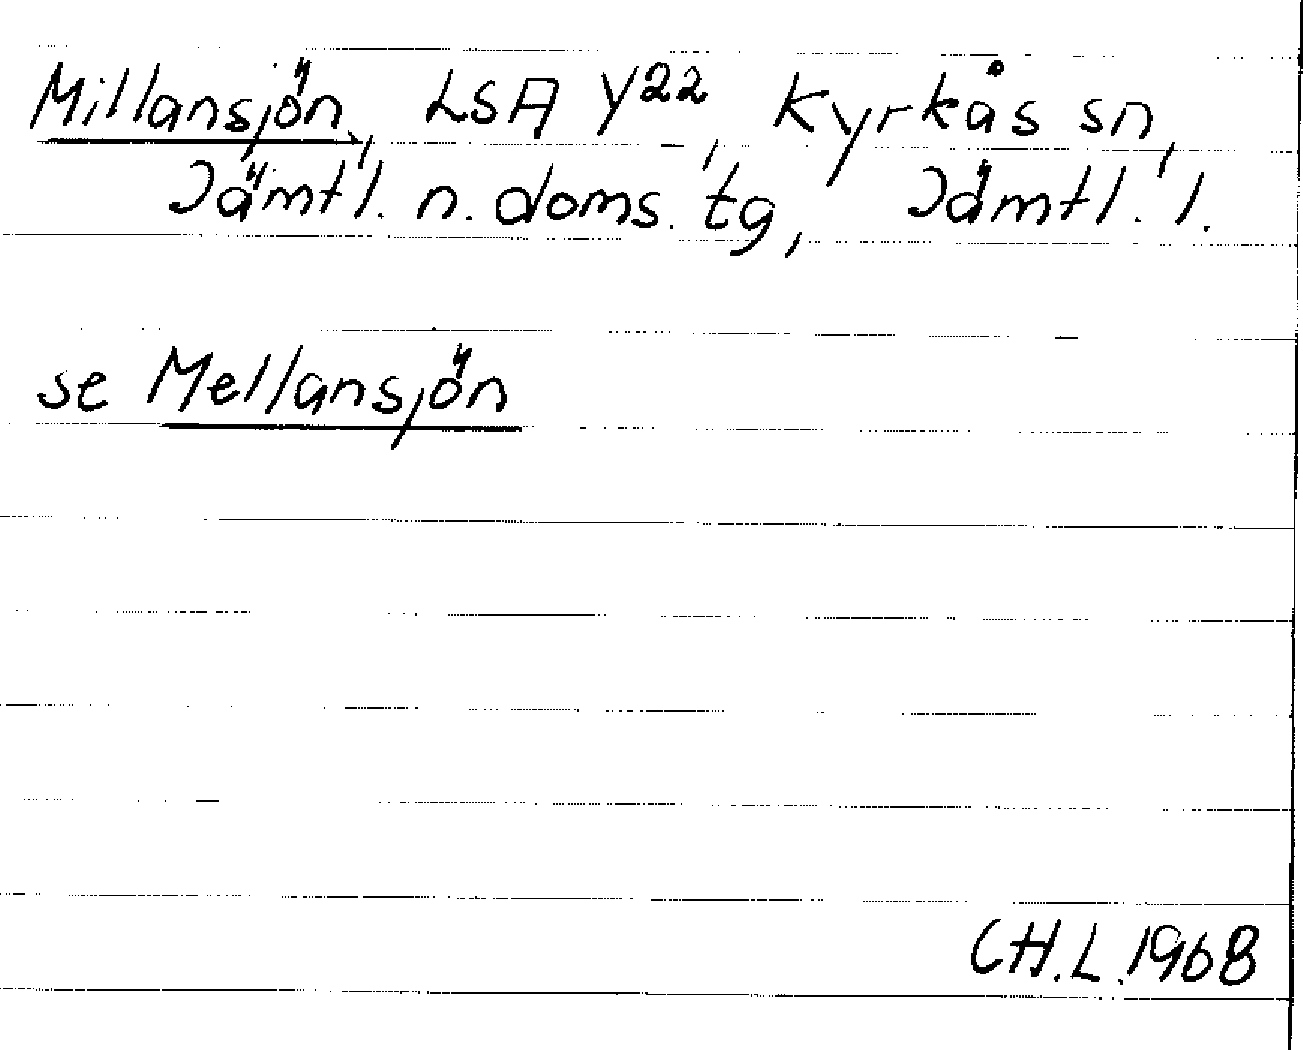 Millansjön, LSA Y22, Kyrkås sn,
Jämtl. n. doms. tg, Jämtl. l.
se Mellansjön
CH.L. 1968